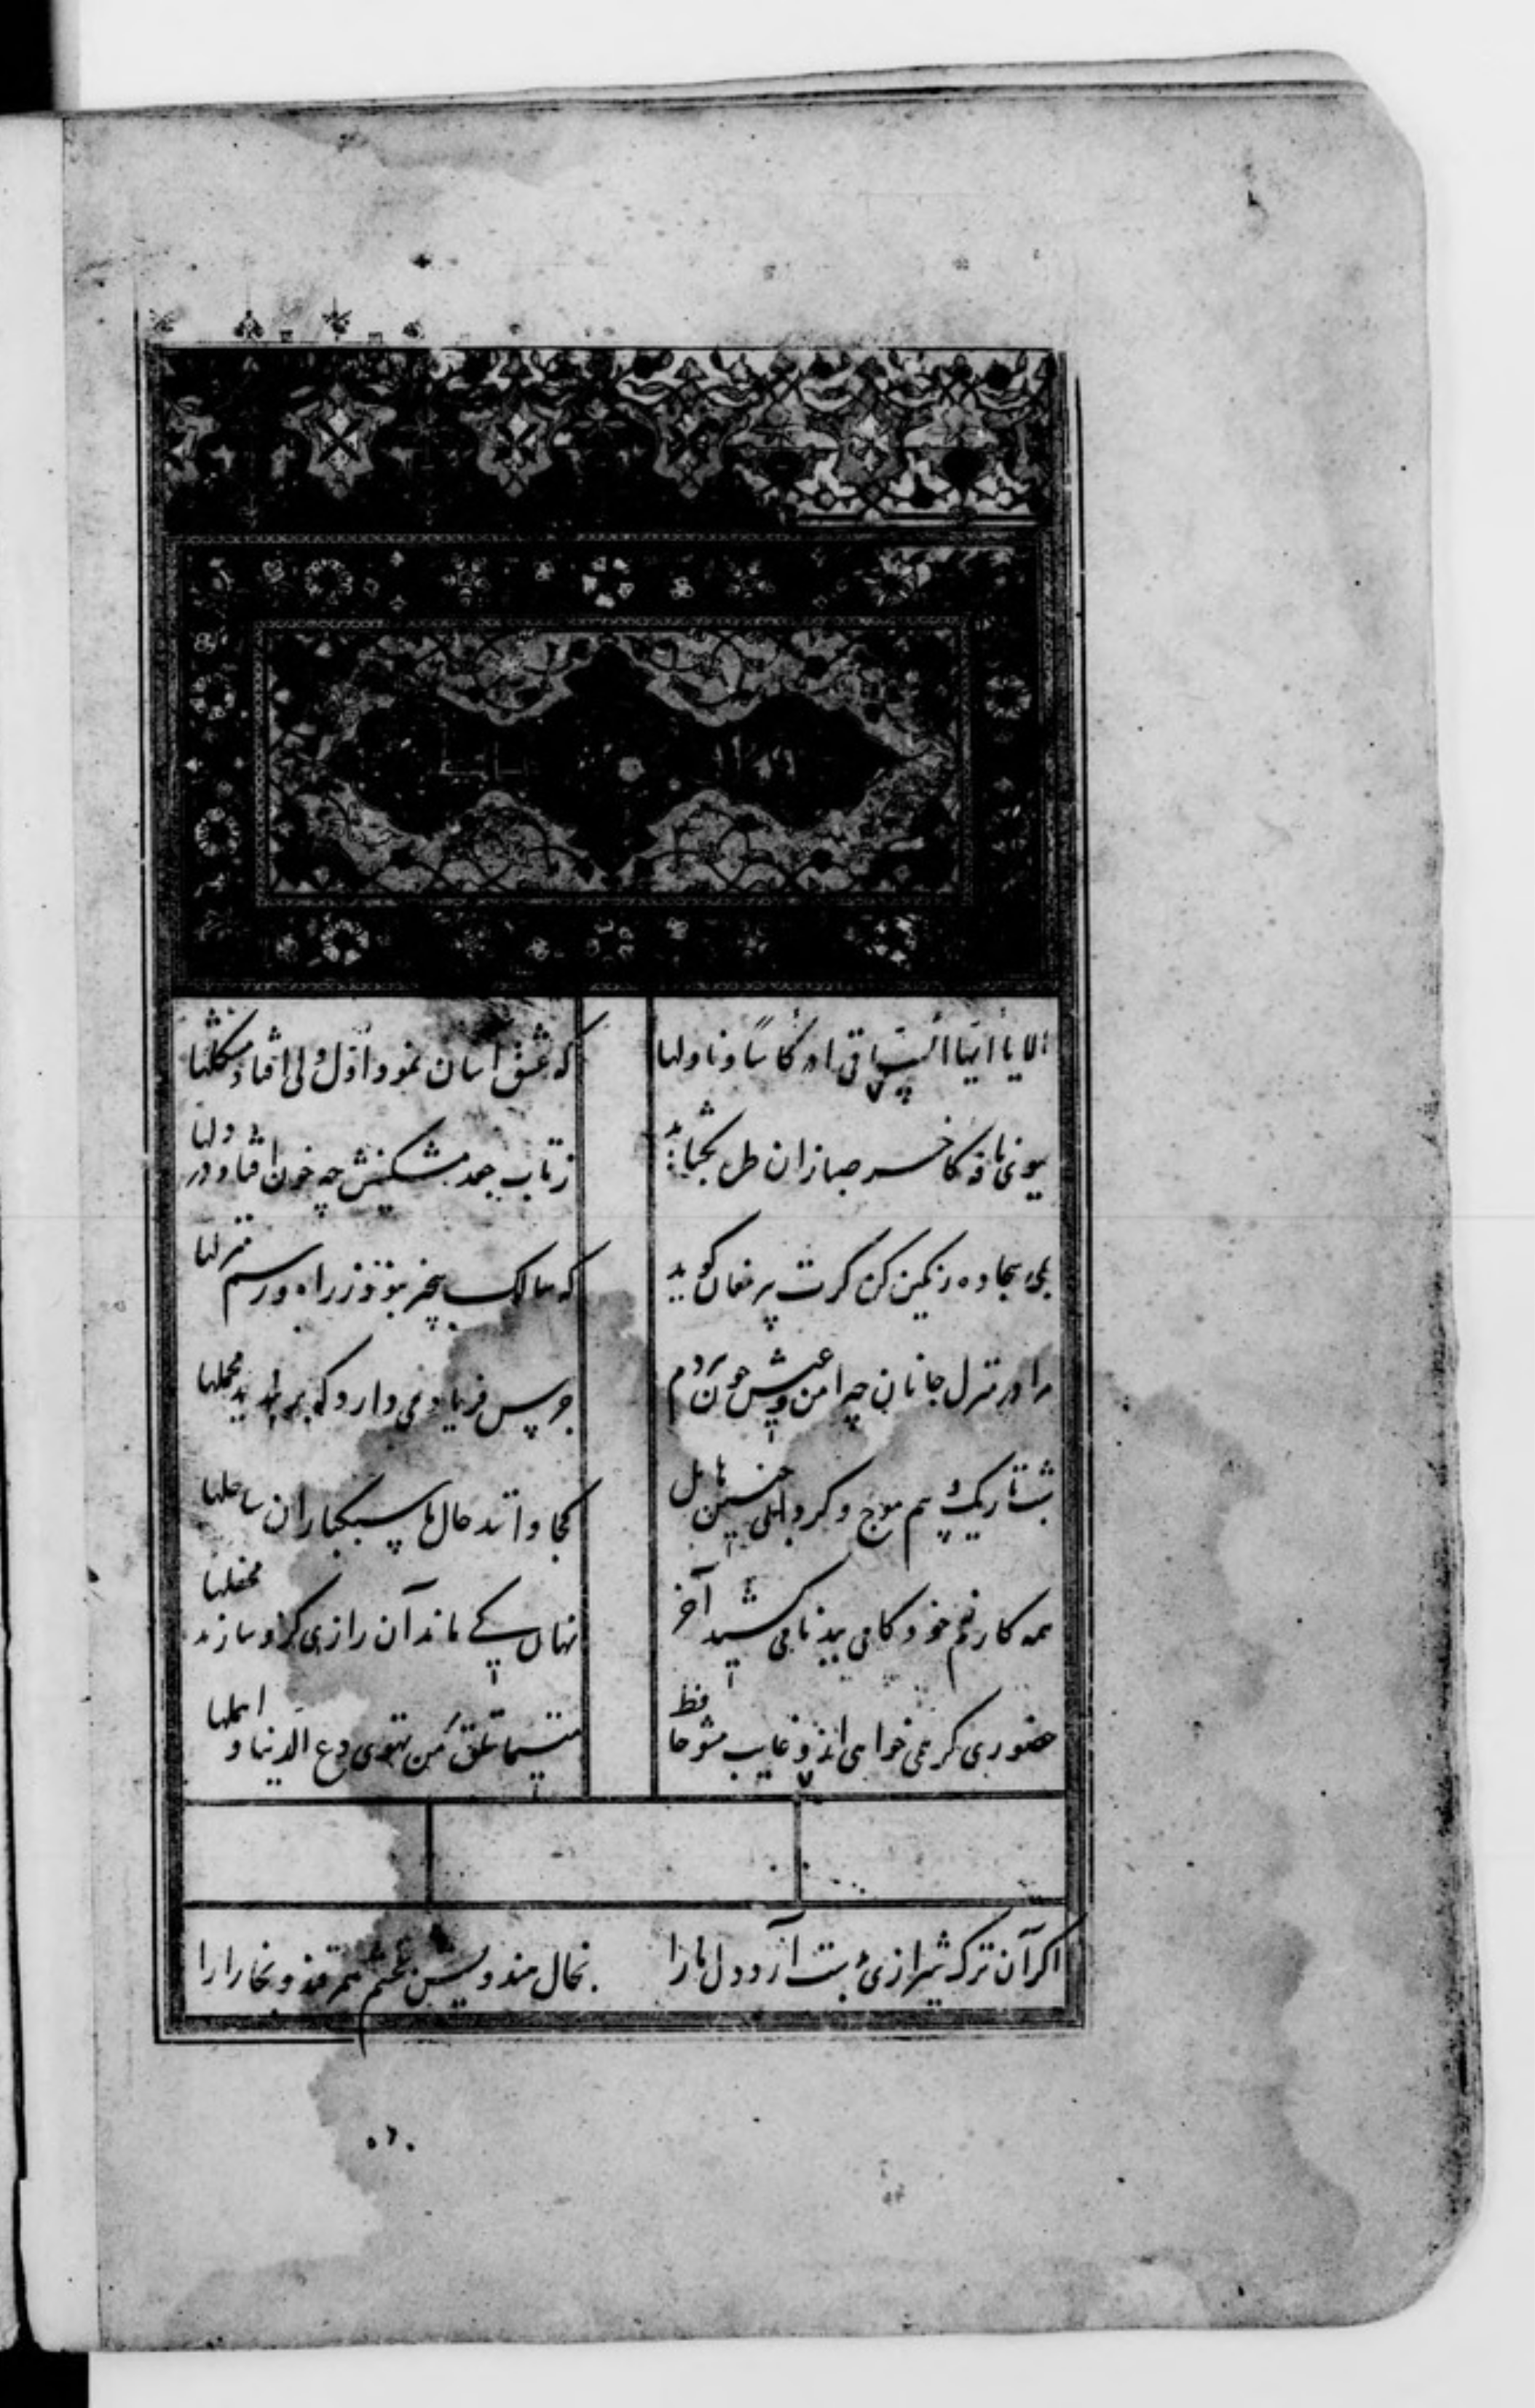 الا یا أیها السّاقی ادر کأسًا و ناولها که عشق آسان نمود اوّل ولی افتاد مشکلها
ببوی نافه کاخر صبا زان طره بکشاید ز تاب جعد مشکینش چه خون افتاد در دلها
بمی سجاده رنکین کن کرت پیر مغان کوید که سالک بیخبر نبود ز راه و رسم منزلها
مرا در منزل جانان چه امن و عیش چون هر دم جرس فریاد می دارد که بربندید محملها
شب تاریک و بیم موج و کردابی چنین هایل کجا دانند حال ما سبکباران ساحلها
همه کارم ز خود کامی ببدنامی کشید آخر نهان کی ماند آن رازی کزو سازند محفلها
حضوری کر همی خواهی ازو غایب مشو حافظ متی ما تلق من تهوی دع الدنیا و اهملها
اکر آن ترک شیرازی بدست آرد دل ما را بخال هندویش بخشم سمرقند و بخارا را